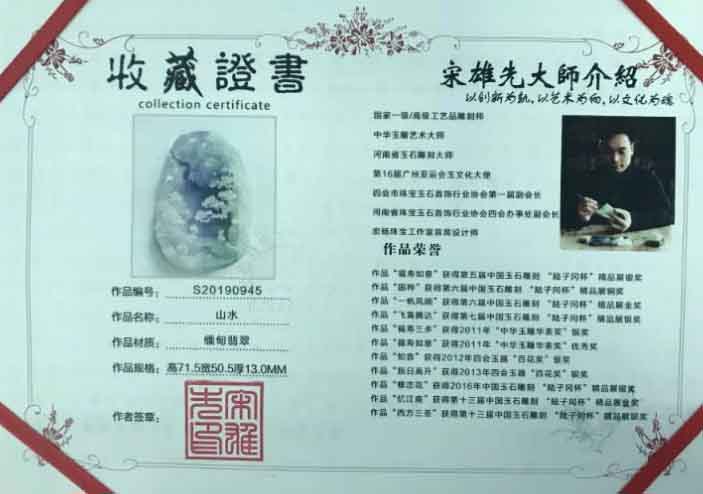 收藏證書
collection certificate
作品编号: S20190945
作品名称: 山水
作品材质: 缅甸翡翠
作品规格: 高71.5宽50.5厚13.0MM
作者签章:
宋雄先印
宋雄先大師介紹
以创新为轨,以艺术为向,以文化为魂
国家一级/高级工艺品雕刻师
中华玉雕艺术大师
河南省玉石雕刻大师
第16届广州亚运会玉文化大使
四会市珠宝玉石首饰行业协会第一届副会长
河南省珠宝玉石首饰行业协会四会办事处副会长
宏杨珠宝工作室首席设计师
作品荣誉
作品“福寿如意”获得第五届中国玉石雕刻 “陆子冈杯”精品展银奖
作品“国粹”获得第六届中国玉石雕刻 “陆子冈杯”精品展铜奖
作品“一帆风顺”获得第六届中国玉石雕刻 “陆子冈杯”精品展金奖
作品“飞黄腾达”获得第七届中国玉石雕刻 “陆子冈杯”精品展银奖
作品“福寿三多”获得2011年“中华玉雕华素奖”银奖
作品“福寿如意”获得2011年“中华玉雕华素奖”优秀奖
作品“如意”获得2012年四会玉器“百花奖”银奖
作品“指日高升”获得2013年四会玉器“百花奖”银奖
作品 获得2016年中国玉石雕刻 “陆子冈杯”精品展银奖
作品“忆江南”获得第十三届中国玉石雕刻 “陆子冈杯”精品展金奖
作品“西方三圣”获得第十三届中国玉石雕刻 “陆子冈杯”精品展铜奖